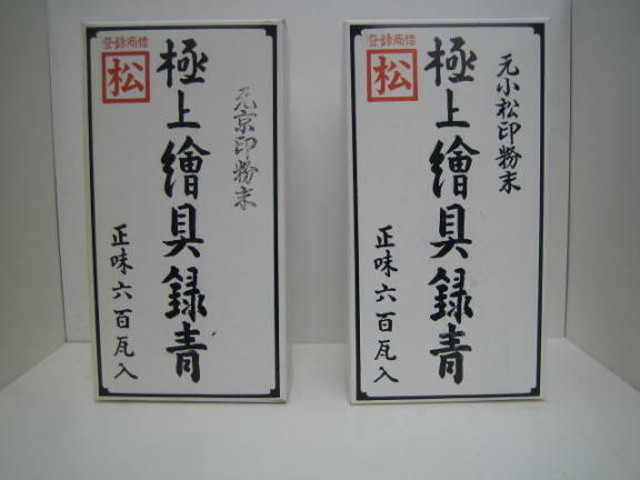 登録商標
松
元京印粉末
極上繪具録青
正味六百瓦入
登録商標
松
元小松印粉末
極上繪具録青
正味六百瓦入